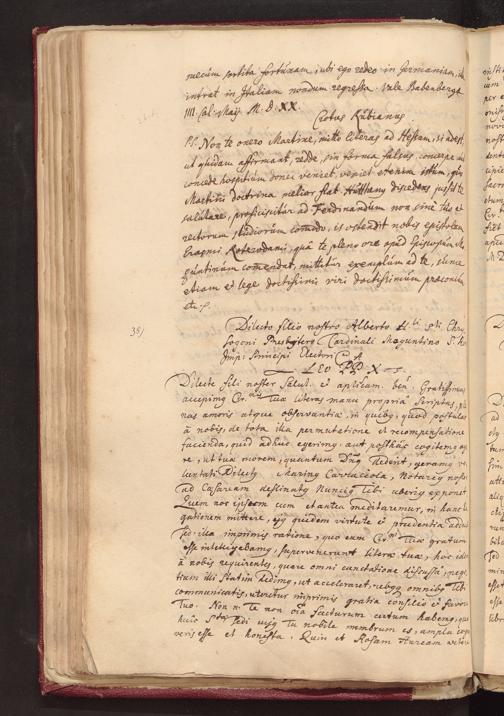 mecum sortita fortunam, ubi ego redeo in Germaniam,
intrat in Italiam nondum regressa. Vale Babenbergæ
IIII. Cal. Maij. M. D. XX.
Crotus Rubianus
Non te onero Martine, mitto literas ad Hessum, si adest,
ut quidam affirmant, redde, sin forma falsus,
concede hospitium donec veniet, veniet etenim
Martini doctrina melior fiat. Huttenus discedens jussit te
salutare, proficiscitur ad Ferdinandum non sine
rectorum studiorum comodo, is ostendit nobis epistolam
Erasmi Roterodami, qua te pleno ore apud Episcopum
guntinum comendat, mittitur exemplum ad te,
etiam et lege doctissimi viri doctissimum præconium
etc.
351
Dilecto filio nostro Alberto
sogoni Presbytero Cardinali Maguntino S. Ro
Imp. Principi Electori
LEO PP X
Dilecte fili noster Salut. et aplicam ben. Gratissimas
accepimus Tuæ literas manu propria scriptas,
nas amoris atque observantiæ, in quibus, quod postulas
à nobis, de tota illa permutatione et recompensatione
facienda, quid adhuc egerimus, aut posthac cogitemus
re, ut tua morem, quantum Dns dederit, geramus
luntati Dilectus Marinus Carvacciola, Notarius noster
ad Cæsarem destinatus Nuncius tibi uberius exponet
Quem nos ipsum cum etantea meditaremur, in hanc
gationem mittere, ejus quidem virtute et prudentia
sed illa imprimis ratione, quo eum Tuæ gratum
esse intelligebamus, supervenerunt literæ tuæ, hoc
à nobis requirentes, quare omni cunctatione discussa,
tium illi statim dedimus, ut acceleraret, rebusque omnibus tibi
communicatis, uteretur imprimis gratia consilio et favore
Tuo. Non n. te non oia facturum certum habemus,
huic Sedi cujus Tu nobile membrum es, ampla
veris esse et honesta. Quin et Rosam Auream